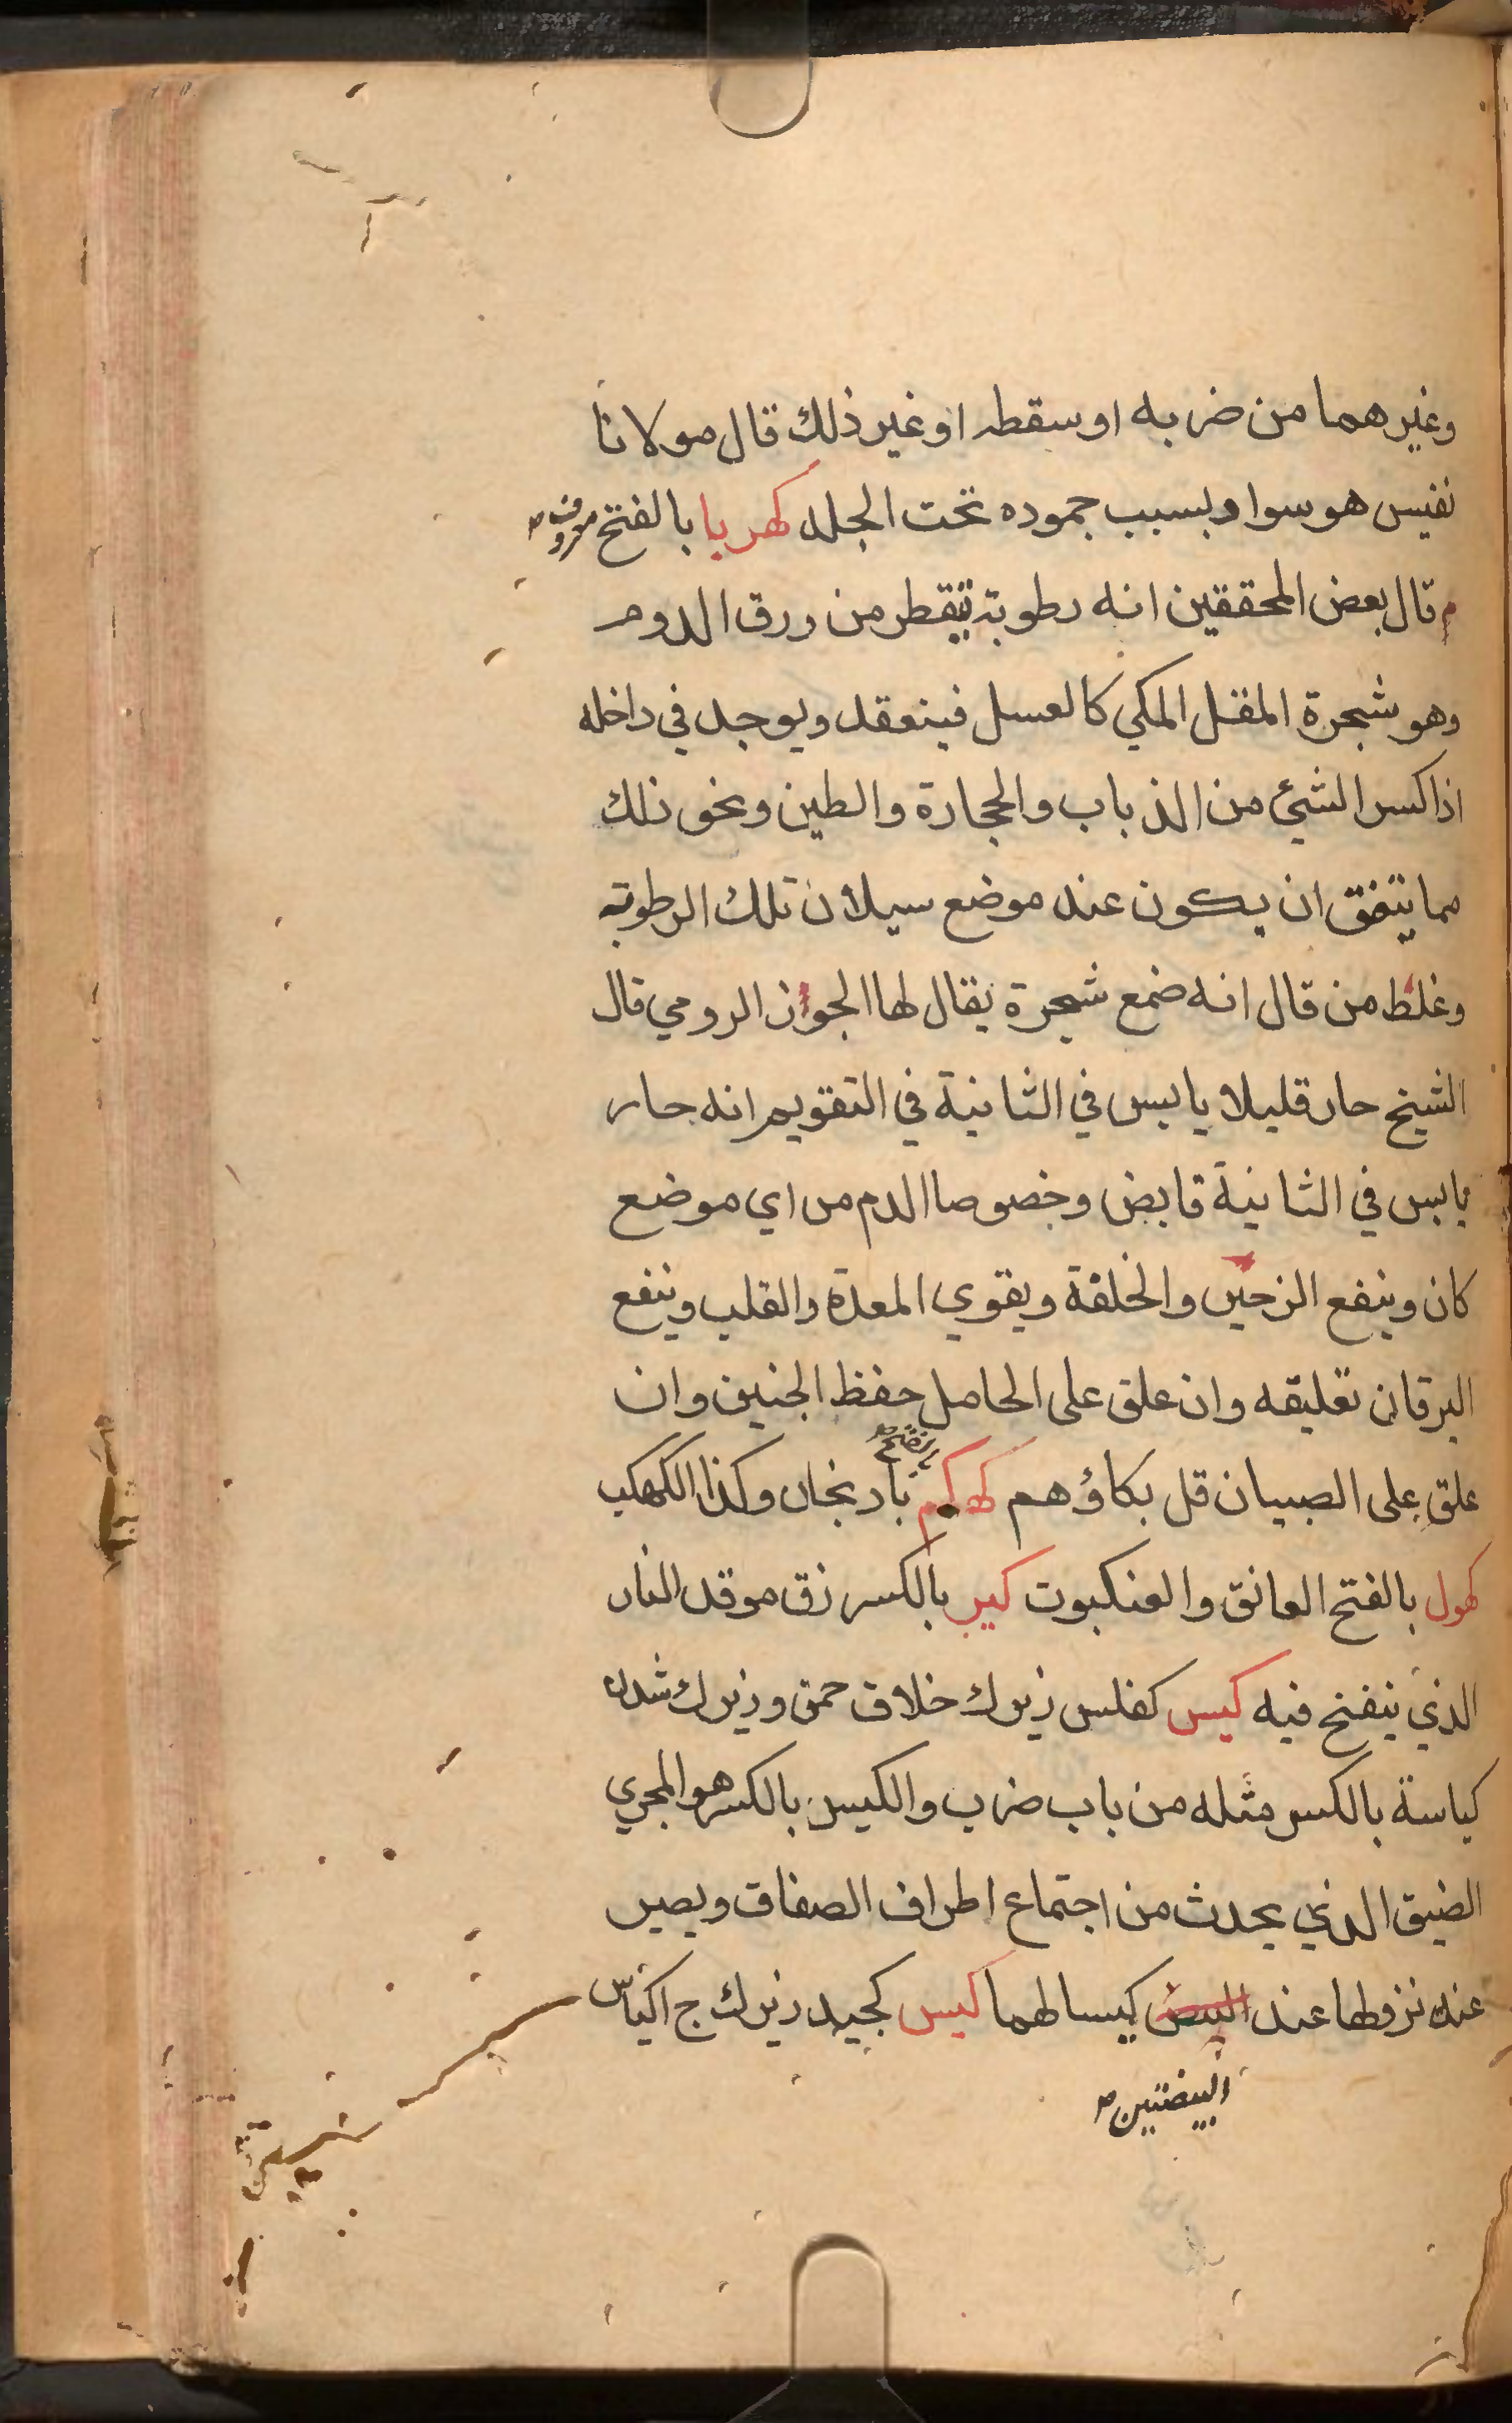 وغيرهما من ضربه او سقطه او غير ذلك قال مولانا
نفيس هو سواد بسبب جموده تحت الجلد كهربا بالفتح معروف صح
م قال بعض المحققين انه رطوبة تتقطر من ورق الدوم
وهو شجرة المقل المكي كالعسل فينعقد ويوجد في داخله
اذا كسر الشئ من الذباب والحجارة والطين ونحو ذلك
مما يتفق ان يكون عند موضع سيلان تلك الرطوبة
وغلط من قال انه ضمع شجرة يقال لها الجوز الرومي قال
الشيخ حار قليلا يابس في الثانية في التقويم انه حار
يابس في الثانية قابض وخصوصا الدم من اي موضع
كان وينفع الزحير والخلفة ويقوي المعدة والقلب وينفع
اليرقان تعليقه وان علق على الحامل حفظ الجنين وان
علق على الصبيان قل بكاؤهم كهكم بالفتح صح بادنجان وكذا الكهكب
كهول بالفتح العانق والعنكبوت كير بالكسر زق موقد النار
الذي ينفخ فيه كيس كفلس زيرك خلاف حمق وزيرك شدن
كياسة بالكسر مثله من باب ضرب والكيس بالكسر هو المجري
الضيق الذي يحدث من اجتماع اطراف الصفاق ويصير
عند نزولها عند البيض كيسا لهما كيس كجيد زيرك ج اكياس
البيضتين صح